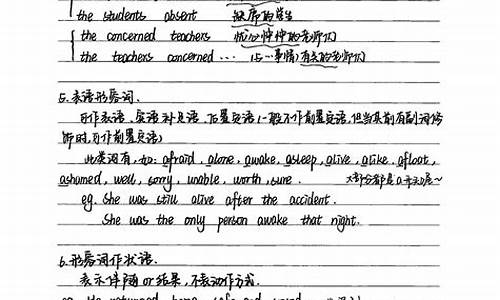 the students absent 缺席的学生
the concerned teachers 忧心忡忡的老师们
the teachers concerned … (与…事情)有关的老师们
5. 表语形容词.
可作表语、宾语补足语、后置定语(一般不作前置定语,但当其前有副词修
饰时,可作前置定语)
此类词有,如: afraid, alone, awake, asleep, alive, alike, afloat,
ashamed, well, sorry, unable, worth, sure. 大部分都是a开头的呢~
eg. She was still alive after the accident.
She was the only person awake that night.
6. 形容词作状语.
表示伴随 or 结果, 不表动作方式.
eg. He returned home safe and